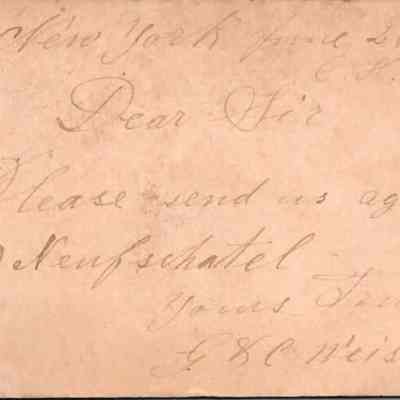 New York June 2
Dear Sir
Please send us ag
Neufschatel
Yours Tru
G & C Weis